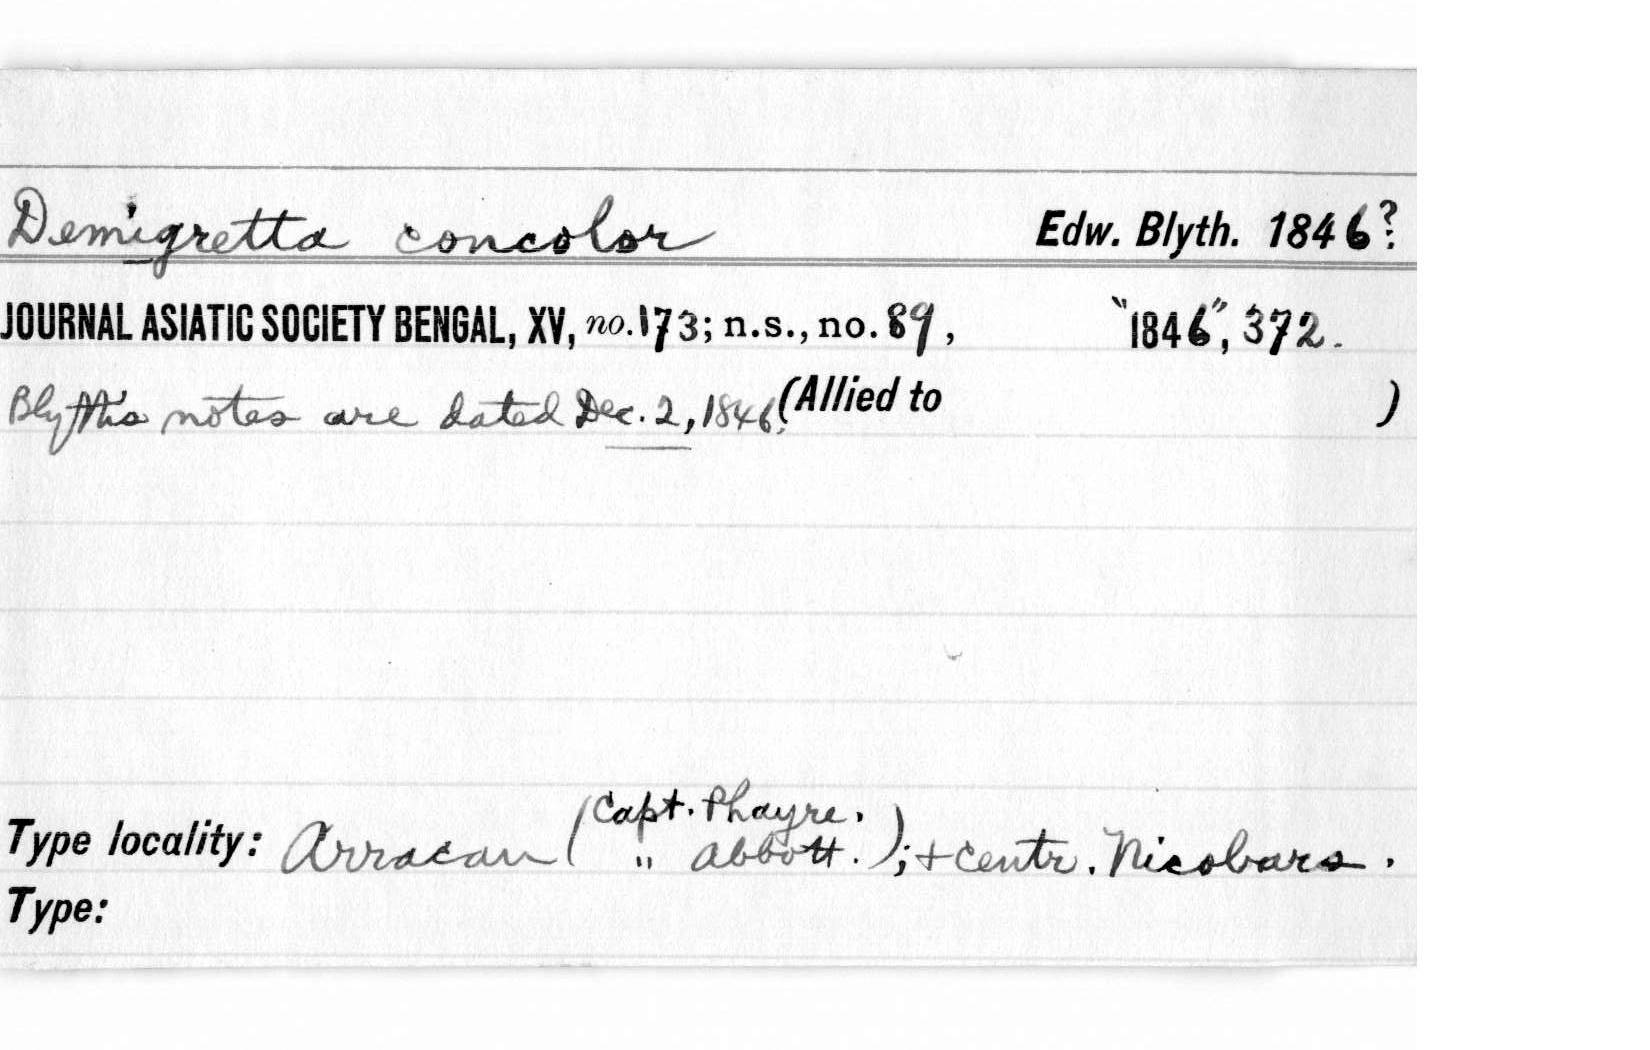 Demigretta concolor Edw. Blyth. 1846?
JOURNAL ASIATIC SOCIETY BENGAL, XV, no. 173; n.s., no. 89, "1846", 372.
Blyth's notes are dated Dec. 2, 1846. (Allied to )
Capt. Phayre.
Type locality: Arracan ( " Abbott. ); + centr. Nicobars.
Type: